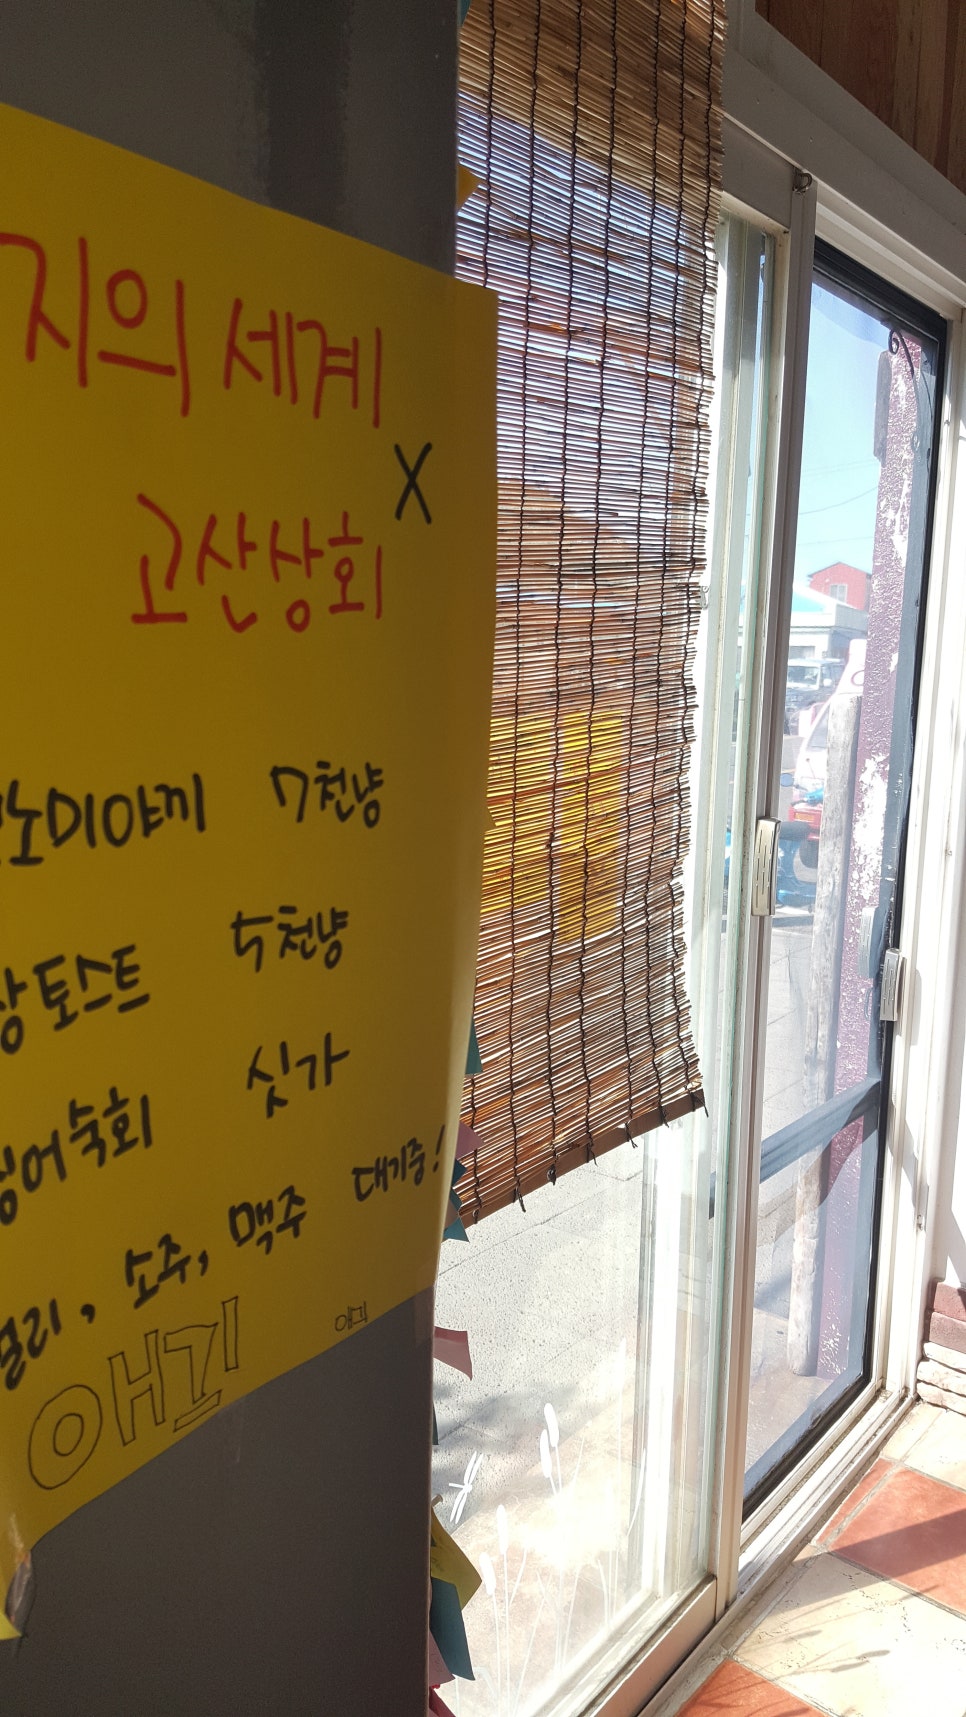 지의 세계
X
고산상회
노미야끼 7천냥
상토스트 5천냥
숙회 싯가
소주, 맥주 대기중!
애긔
애긔